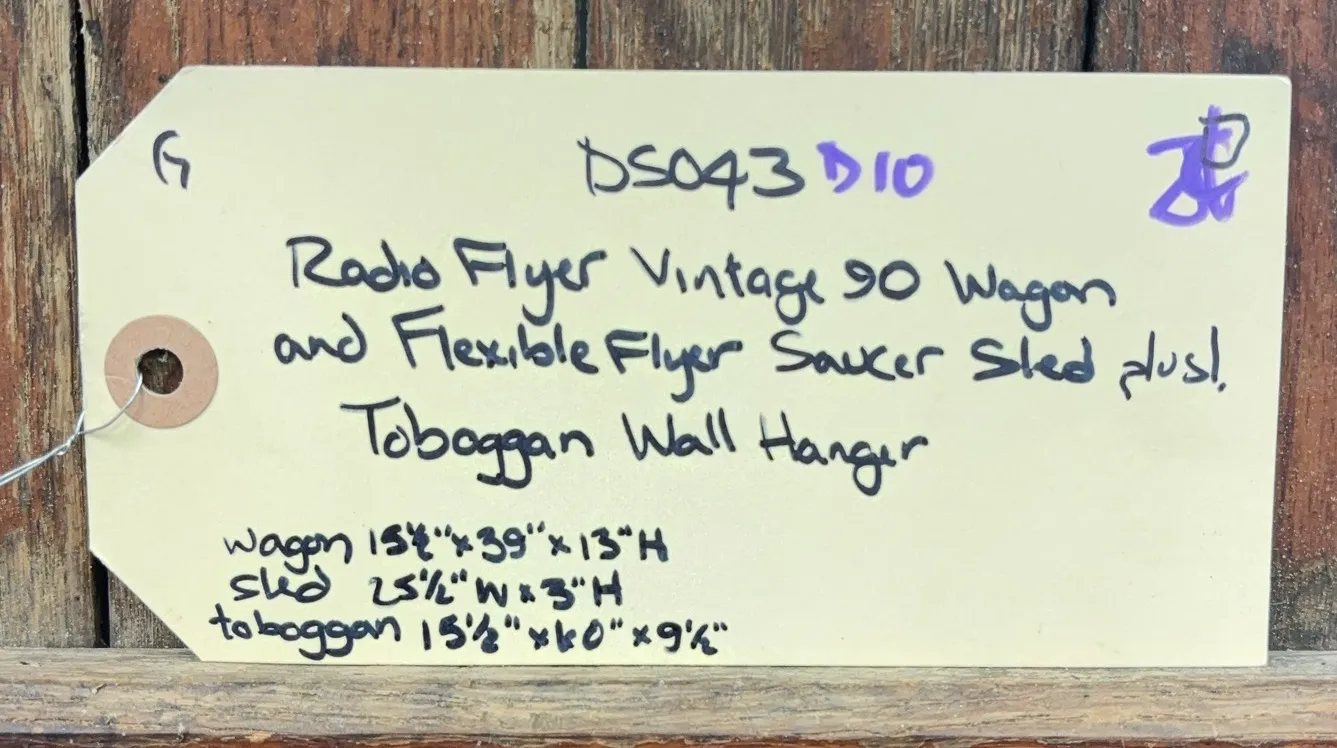 G
DS043 D10
D
Radio Flyer Vintage 90 Wagon
and Flexible Flyer Saucer Sled plus!
Toboggan Wall Hanger
wagon 15½" x 39" x 13" H
sled 25½" W x 3" H
toboggan 15½" x 60" x 9½"